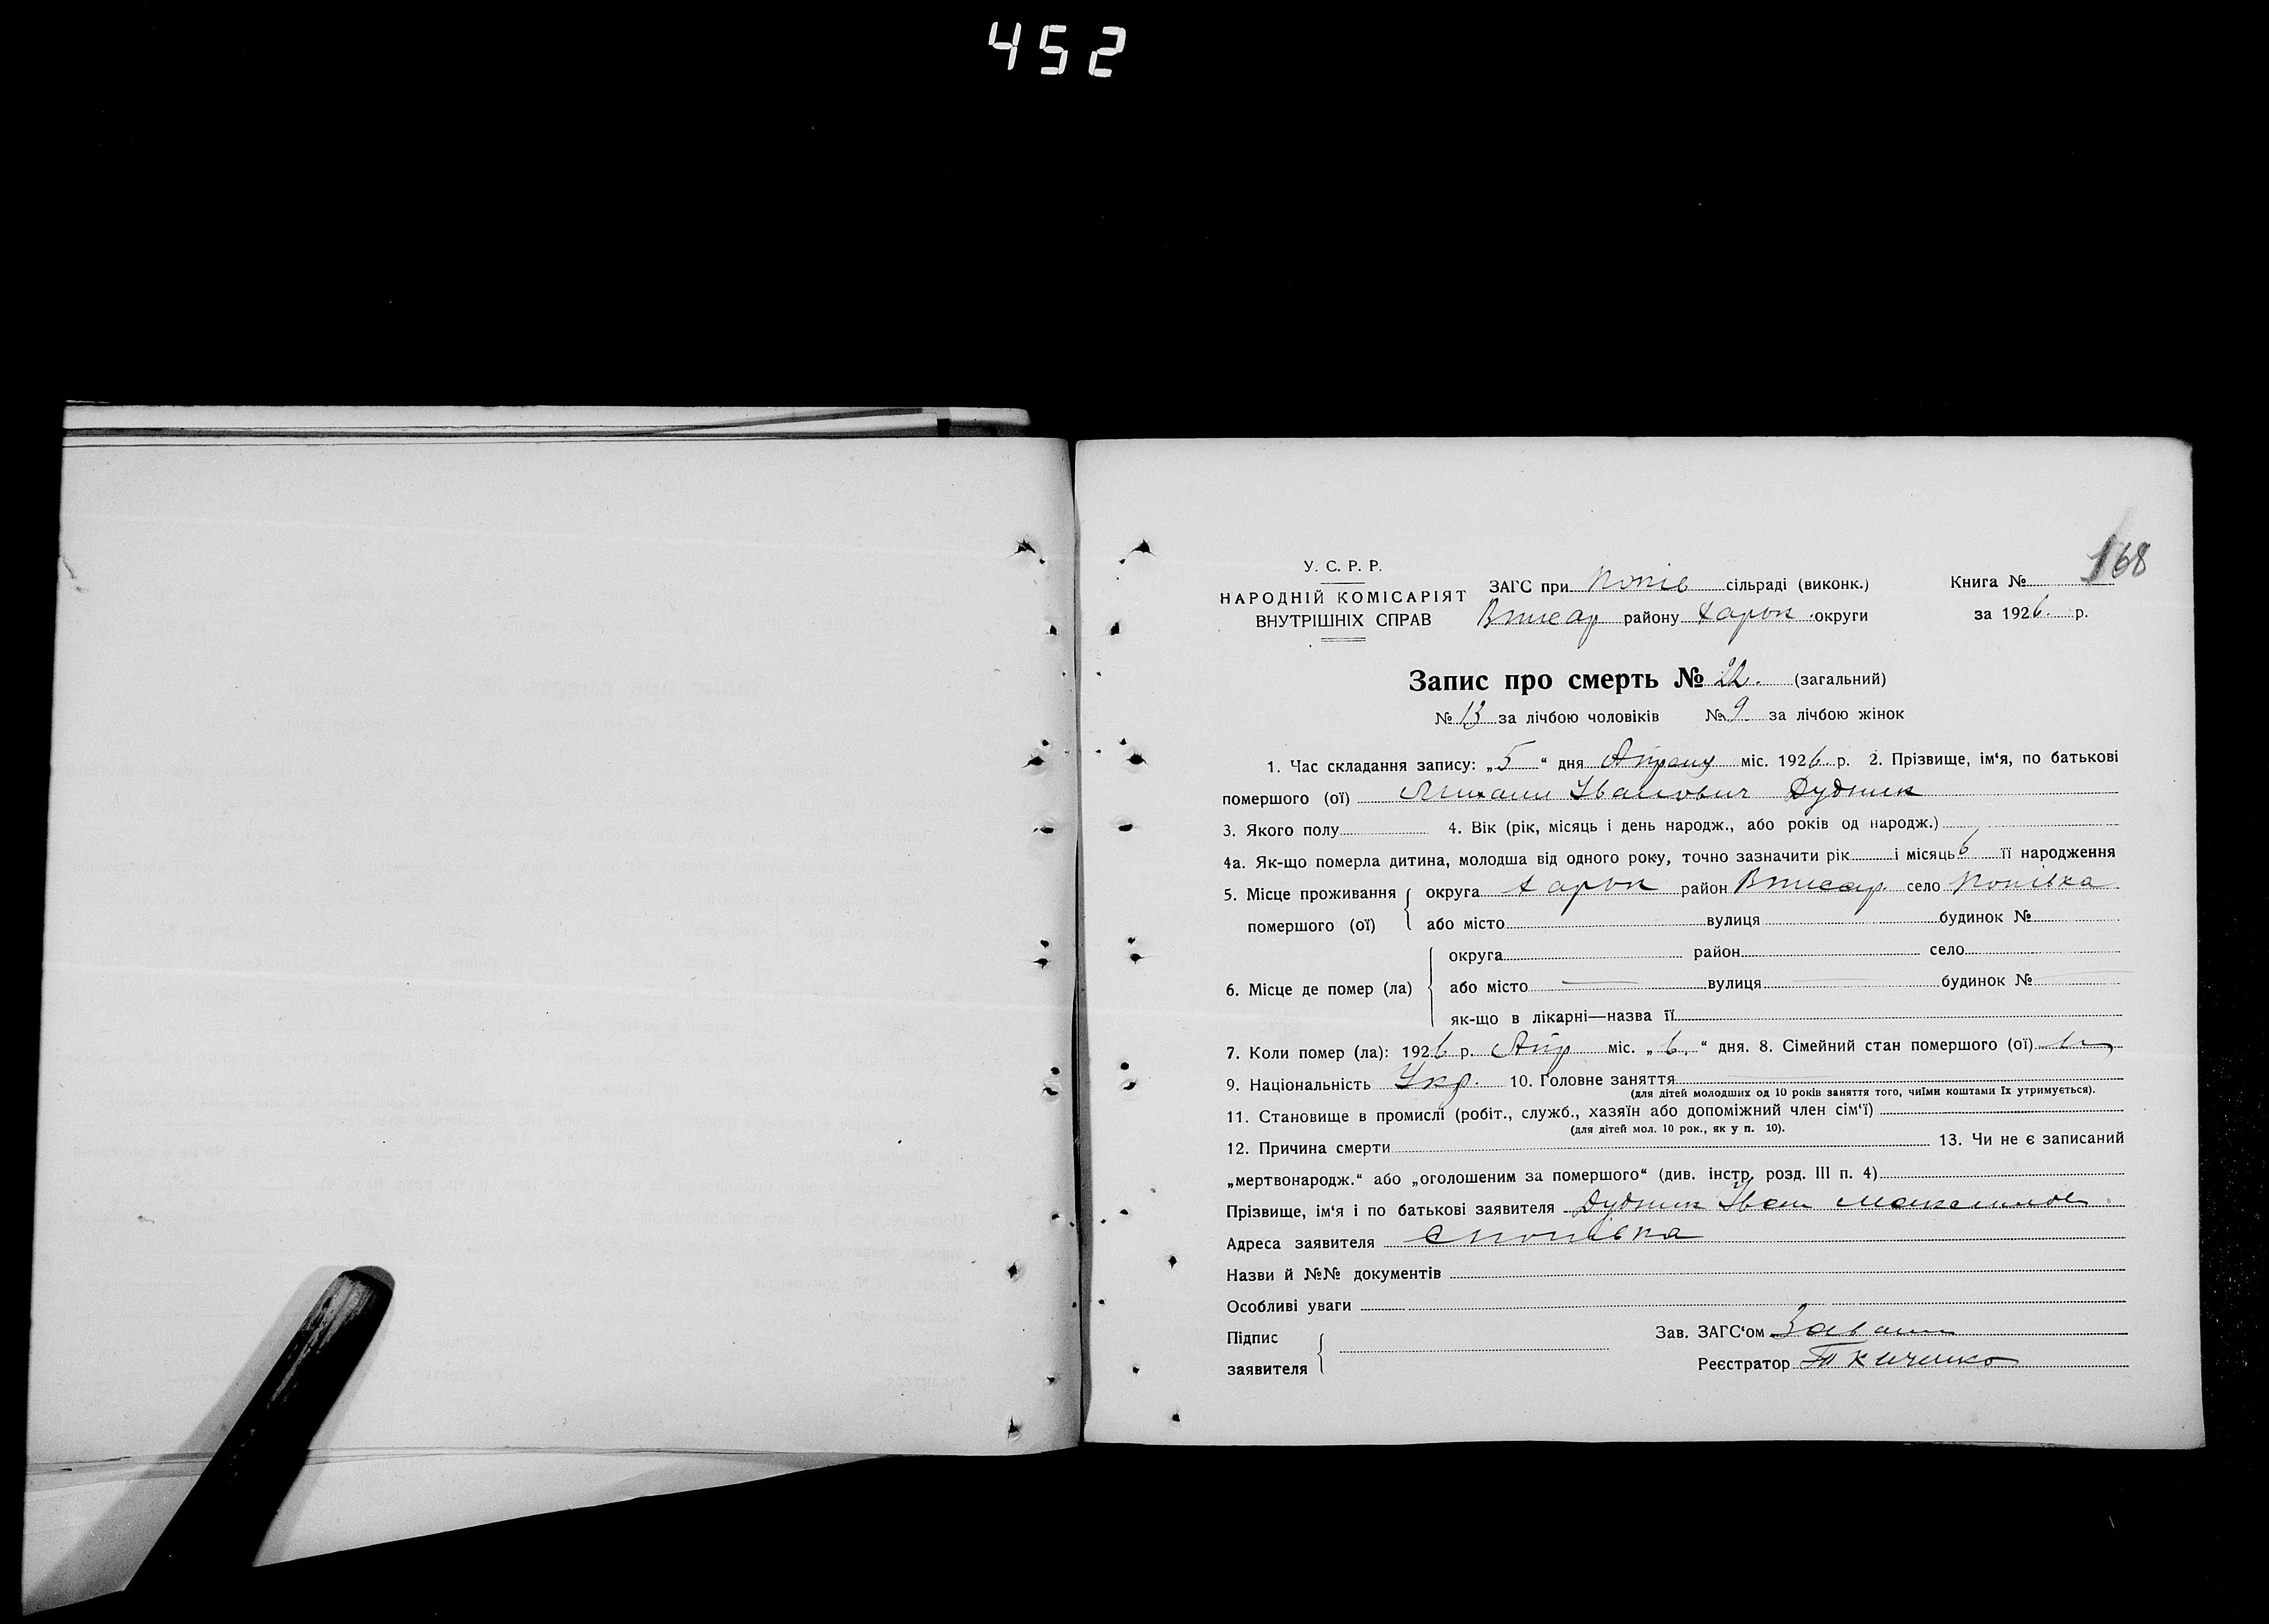 452
168
У. С. Р. Р.
НАРОДНІЙ КОМІСАРІЯТ
ВНУТРІШНІХ СПРАВ
ЗАГС при Попів сільраді (виконк.)
району Харьк округи
Книга №
за 1926. р.
Запис про смерть № 22. (загальний)
№ 13 за лічбою чоловіків № 9 за лічбою жінок
1. Час складання запису: „5“ дня міс. 1926. р. 2. Прізвище, ім‘я, по батькові
помершого (ої) Іванович Дудник
3. Якого полу 4. Вік (рік, місяць і день народж., або років од народж.)
4а. Як-що померла дитина, молодша від одного року, точно зазначити рік і місяць 6 її народження
5. Місце проживання округа Харьк район село Попівка
помершого (ої) або місто вулиця будинок №
округа район село
6. Місце де помер (ла) або місто вулиця будинок №
як-що в лікарні—назва її
7. Коли помер (ла): 1926 р. Апр міс. „6.“ дня. 8. Сімейний стан помершого (ої)
9. Національність Укр. 10. Головне заняття
(для дітей молодших од 10 років заняття того, чиїми коштами їх утримується).
11. Становище в промислі (робіт., служб., хазяїн або допоміжний член сім‘ї)
(для дітей мол. 10 рок., як у п. 10).
12. Причина смерти 13. Чи не є записаний
„мертвонародж.“ або „оголошеним за помершого“ (див. інстр. розд. III п. 4)
Прізвище, ім‘я і по батькові заявителя Дудник Іван
Адреса заявителя с Попівка
Назви й №№ документів
Особливі уваги
Підпис
заявителя
Зав. ЗАГС‘ом
Реєстратор